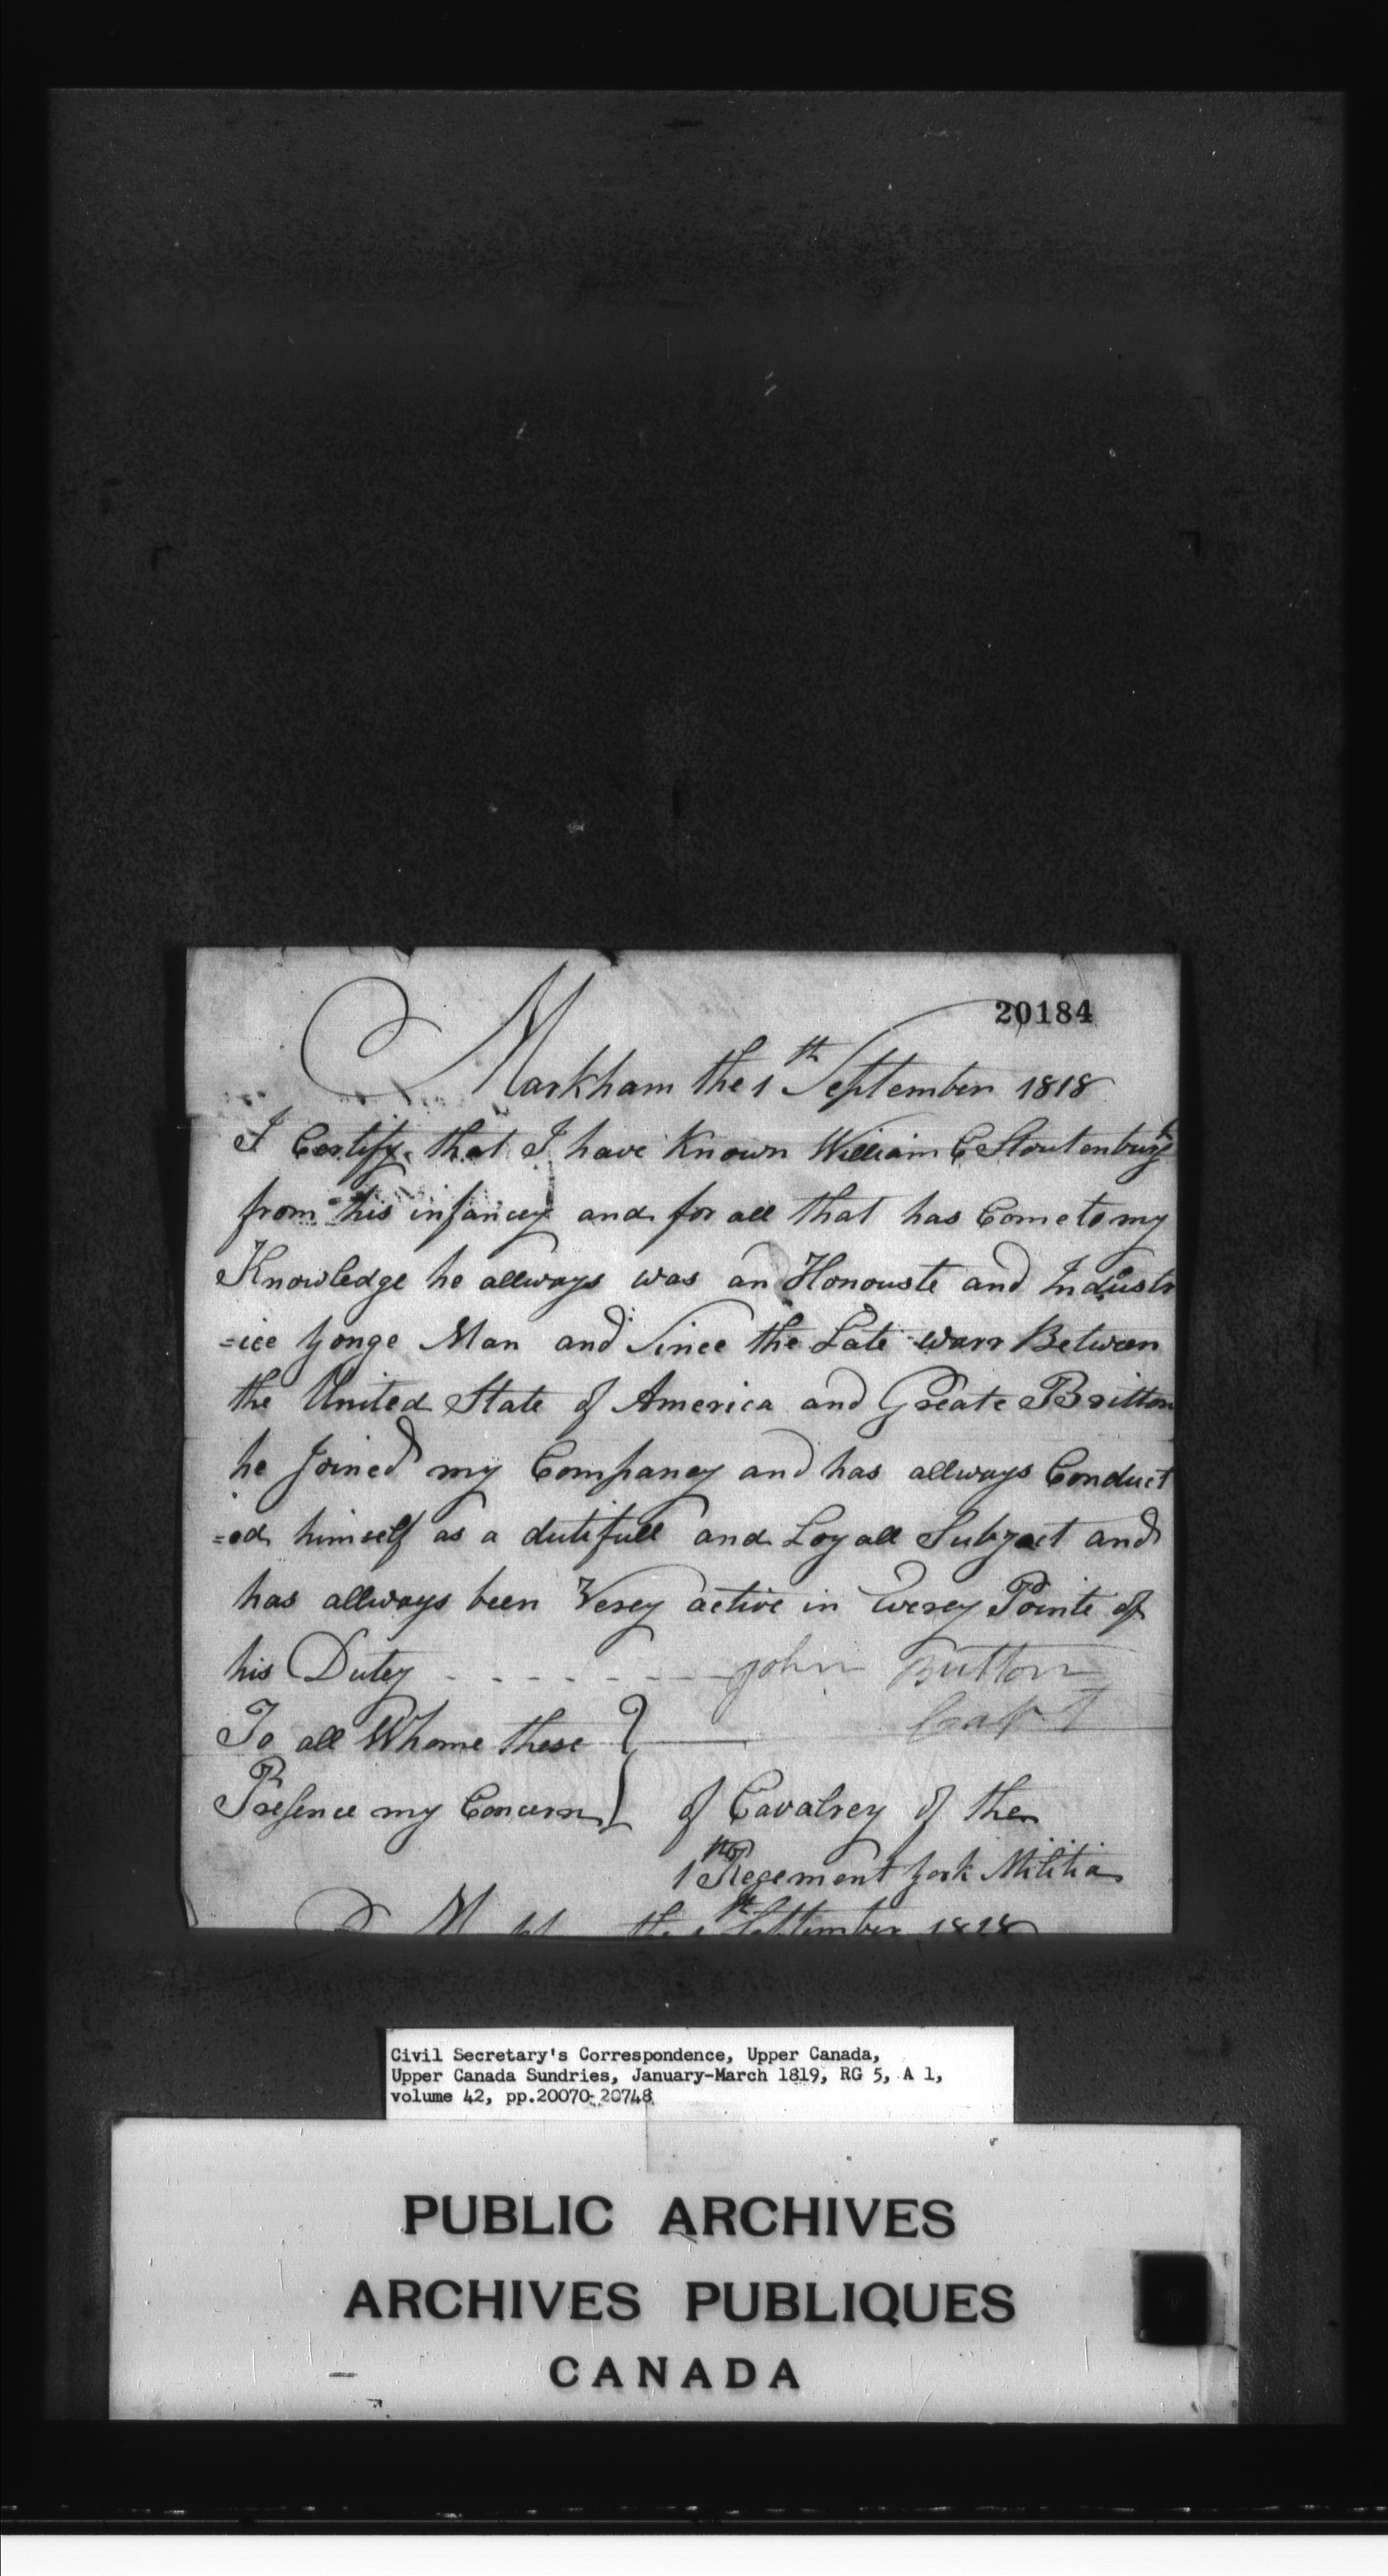 20184
Markham the 1th September 1818
I Certify that I have Known William C Stoutenburgh
from his infancy and for all that has Come to my
Knowledge he allways was an Honouste and Industr
=ice Yonge Man and Since the Late warr Between
the United State of America and Greate Britton
he Joined my Company and has allways Conduct
=ed himself as a dutifull and Loyall Subject and
has allways been Verey active in Everey Pointe of
his Dutey - - - - - - - John Button
Capt
To all Whome these
Presence my Concern of Cavalrey of the
1th Regement York Militia
the 1th September 1818
Civil Secretary's Correspondence, Upper Canada,
Upper Canada Sundries, January-March 1819, RG 5, A 1,
volume 42, pp.20070-20748
PUBLIC ARCHIVES
ARCHIVES PUBLIQUES
CANADA